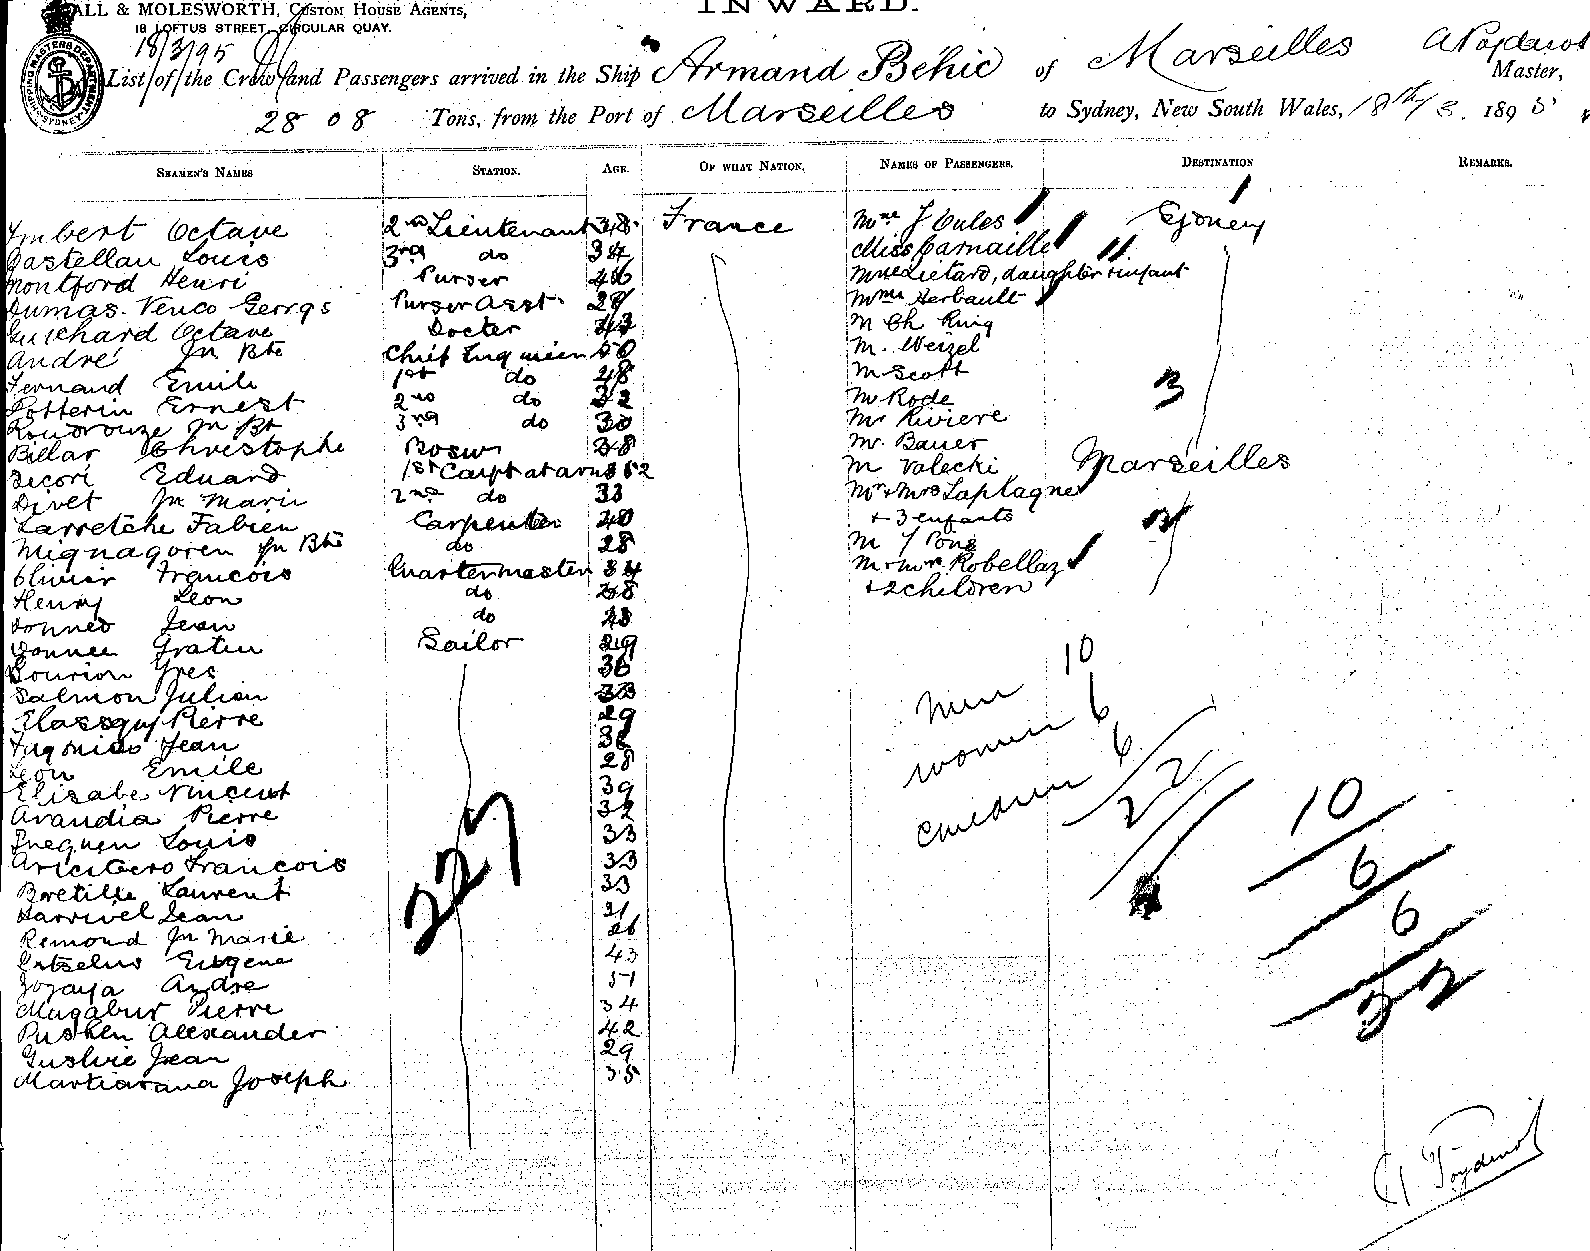 INWARD.
ALL & MOLESWORTH, CUSTOM HOUSE AGENTS,
18 LOFTUS STREET, CIRCULAR QUAY.
18/3/95
List of the Crew and Passengers arrived in the Ship Armand Béhic of Marseilles
Master,
2808 Tons, from the Port of Marseilles to Sydney, New South Wales, 18th/3. 1895
SEAMEN'S NAMES STATION. AGE. OF WHAT NATION. NAMES OF PASSENGERS. DESTINATION REMARKS.
Imbert Octave 2nd Lieutenant 38 France Mme J Cules Sydney
Castellan Louis 3rd do 34 Miss Carnaille
Montford Henri Purser 46 Mme Lietard, daughter + infant
Dumas Venco Georges Purser Asst 28 Mme Herbault
Guichard Octave Docter 43 M Ch Ruig
André Jn Bte Chief 50 M. Weizel
Fernand Emile 1st do 48 M Scott
Potterin Ernest 2nd do 32 M Rode 3
Jn Bt 3rd do 30 Mr Riviere
Billar Christophe Bosun 38 Mr. Bauer
Decori Eduard 1st Capt at arms 52 M Valecki Marseilles
Divet Jn Marie 2nd do 33 Mr + Mrs Laplagne
Larretche Fabien Carpenter 40 + 3 enfants
Mignagoren Jn Bte do 28 M J Pons
Olivier Francois Quartermaster 34 M + Mme Robellaz
Henry Leon do 38 + 2 children
Jean do 43
Gratien Sailor 29
Bourion Yves 36
Salmon Julien 33
Elassquy Pierre 29
Jean
Leon Emile 28
Elisabe Vincent 39
Arandia Pierre 32
Louis 33
Francois 33
Bretille Laurent 33
Harrivel Jean 21
Remond Jn Marie 26
Eugene 43
Zozaya Andre 51
Magabur Pierre 34
Pushen Alexander 42
Gushie Jean 29
Martiarana Joseph 35
227
men 10
women 6
children 6
22
10
6
6
22